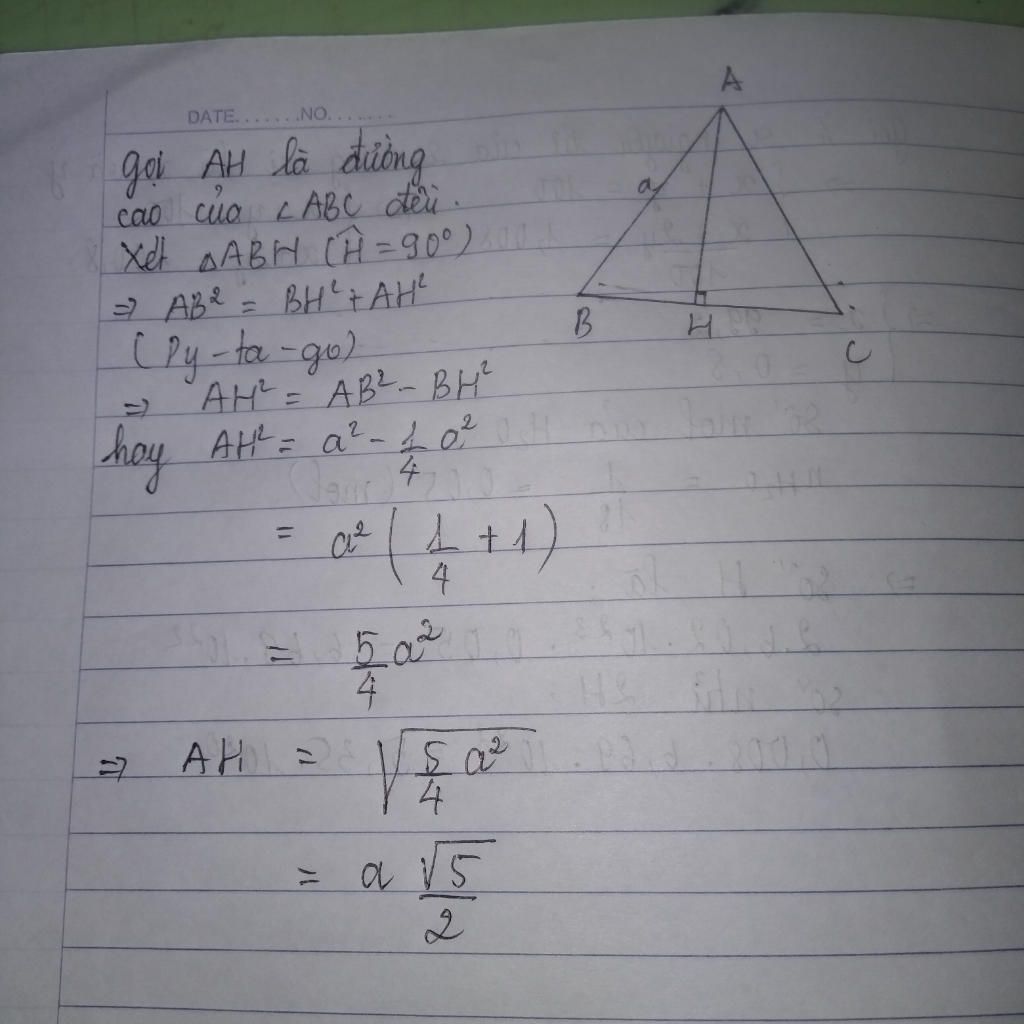 DATE.......NO........
gọi AH là đường
cao của ∠ABC đều.
Xét △ABH (Ĥ = 90°)
⇒ AB² = BH² + AH²
(Py-ta-go)
⇒ AH² = AB² - BH²
hay AH² = a² - 1/4 a²
= a² (1/4 + 1)
= 5/4 a²
⇒ AH = √(5/4 a²)
= a √5/2
A
a
B
H
C